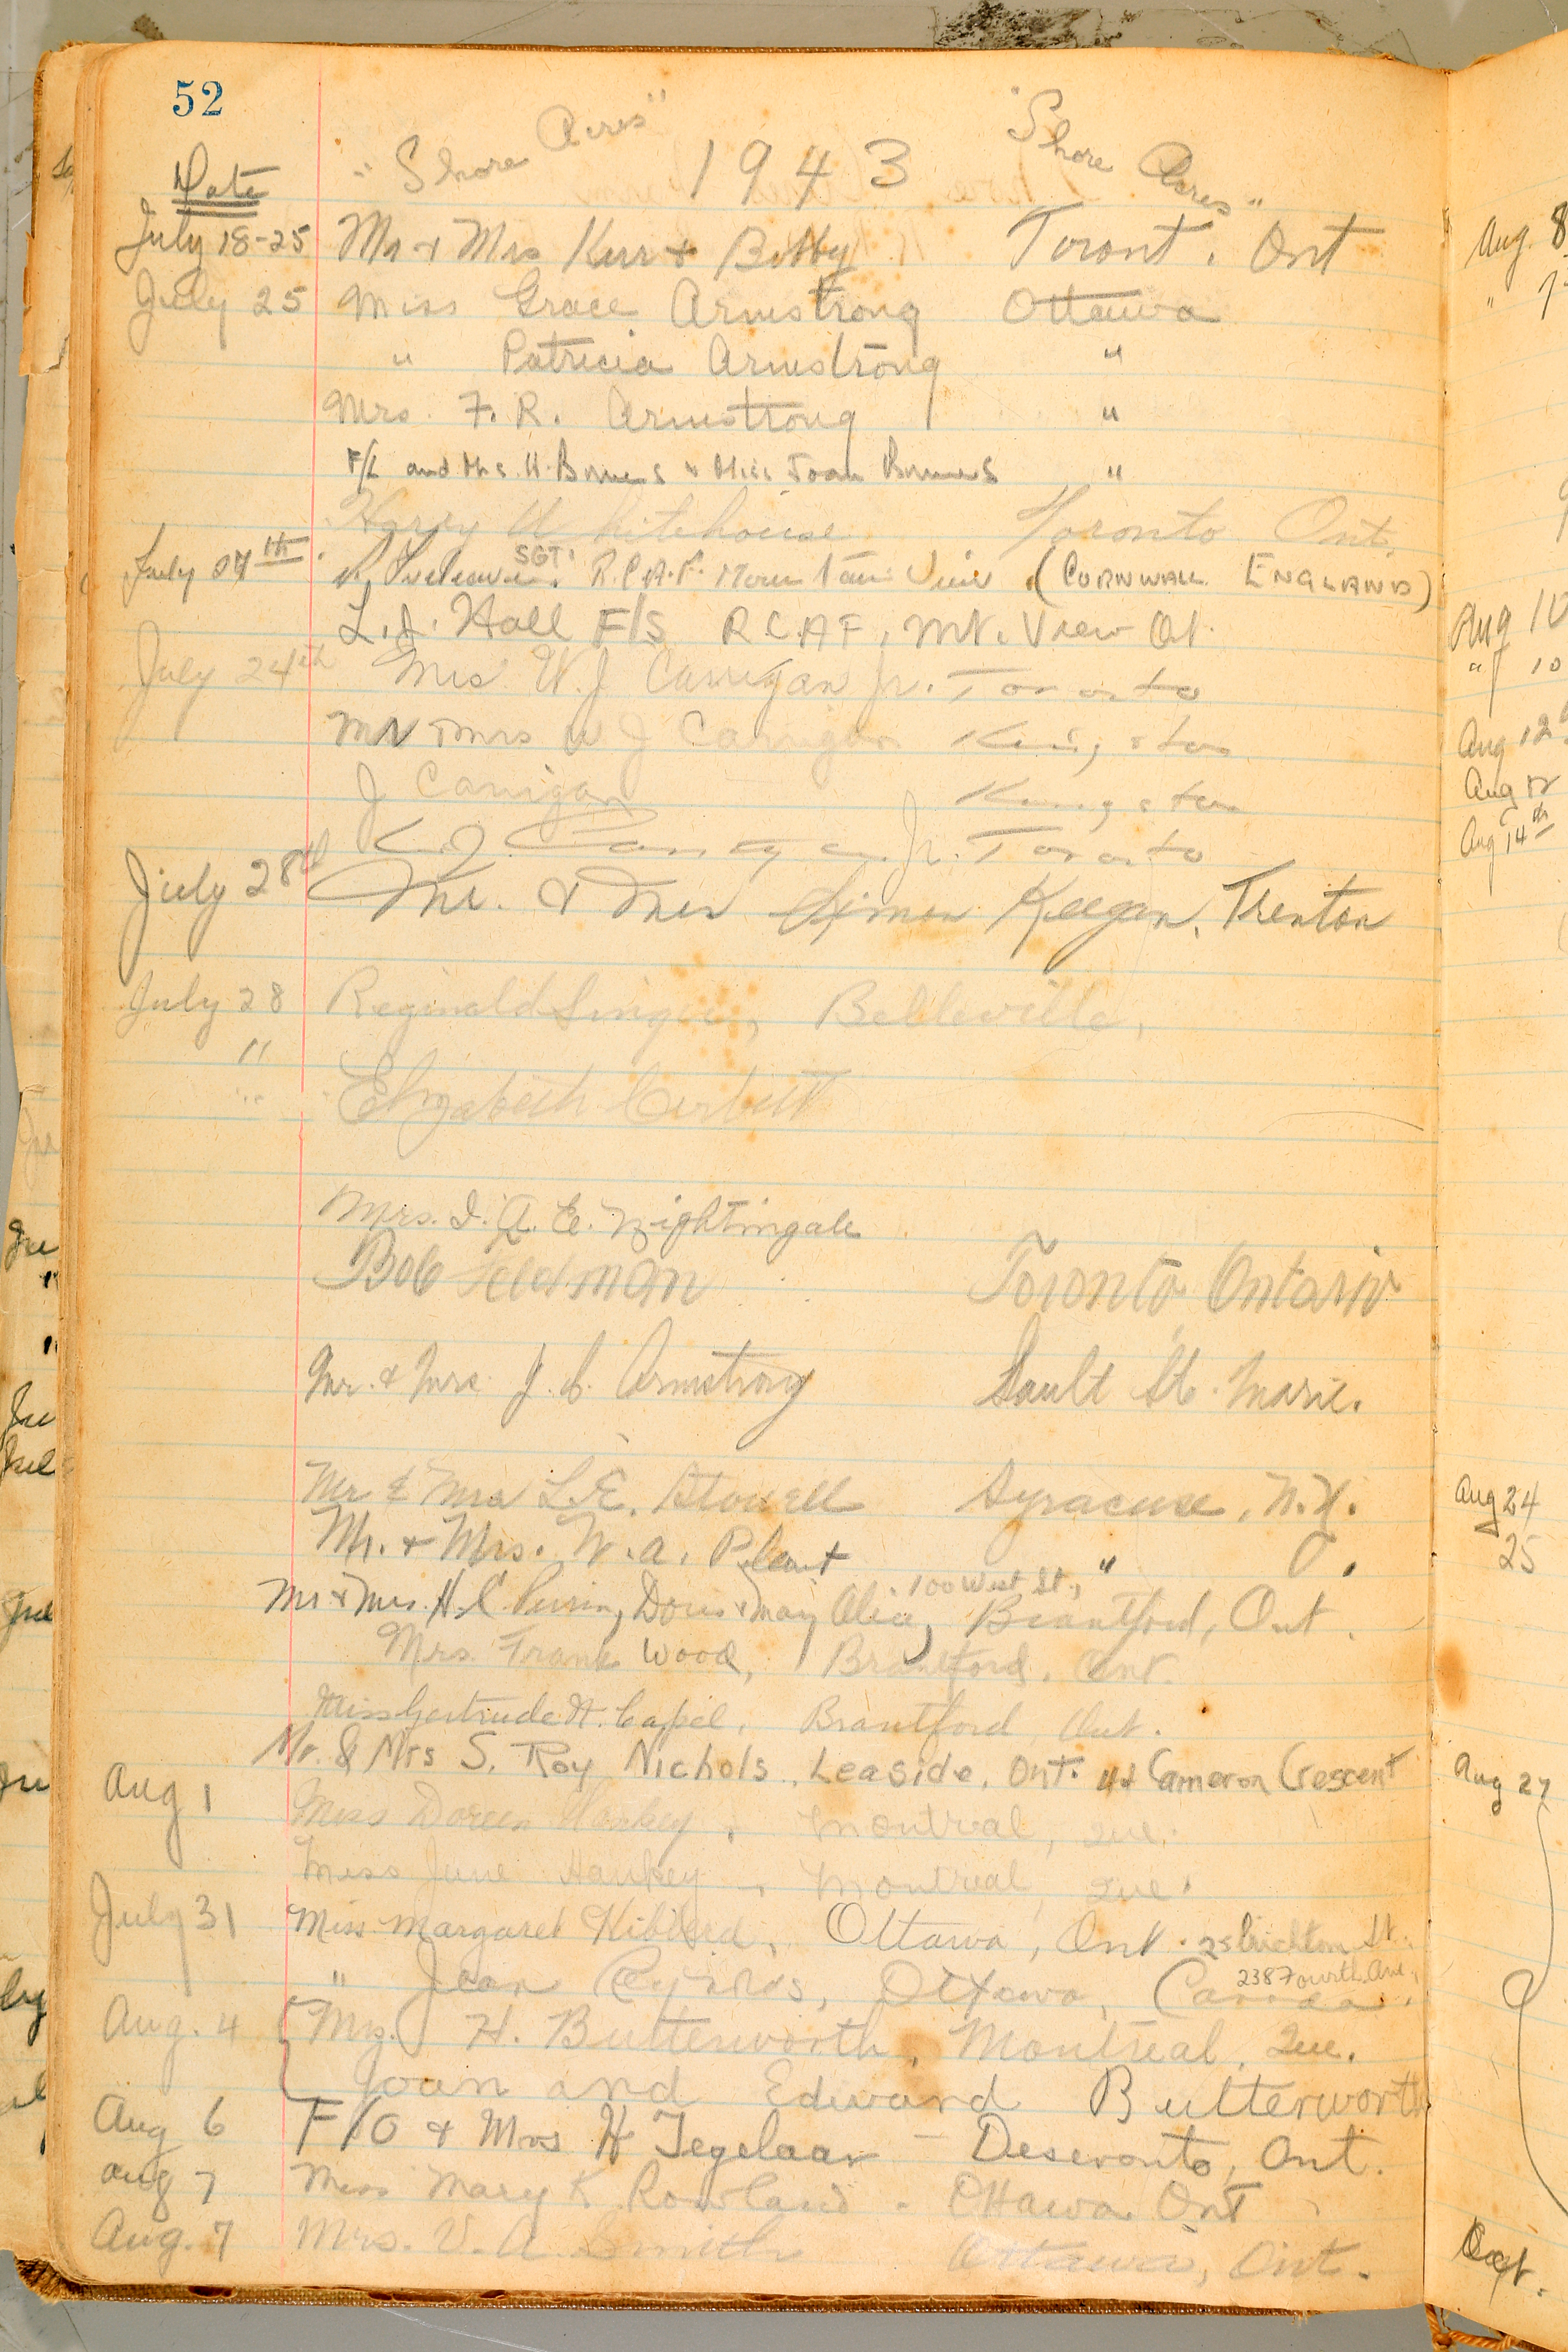 52
"Shore Acres" 1943 "Shore Acres"
Date
July 18-25 Mr + Mrs Kerr + Bobby Toront. Ont
July 25 Miss Grace Armstrong Ottawa
" Patricia Armstrong "
Mrs. F. R. Armstrong "
F/L and Mrs. H. & Miss Joan "
Harry Whitehouse Toronto Ont.
July th SGT. R.C.A.F. Mountain View (CORNWALL ENGLAND)
L. J. Hall F/S R.C.A.F, Mt. View Ont.
July 24th Mrs W. J. Carrigan Jr. Toronto
Mr & Mrs W J Carrigan Kingston
J Carrigan Kingston
Jr. Toronto
July 28th Mr. & Mrs Simon Keegan, Trenton
July 28 Reginald Belleville,
" Elizabeth Corbett
Mrs. I. A. E. Nightingale
Bob Feldman Toronto Ontario
Mr. & Mrs. J. C. Armstrong Sault Ste. Marie.
Mr & Mrs L. E. Stowell Syracuse, N.Y.
Mr. + Mrs. W. A. Plant "
Mr & Mrs. H. C. Doris & May Alice, 100 West St., Brantford, Ont.
Mrs. Frank Wood, Brantford, Ont.
Miss Gertrude H. Brantford, Ont.
Mr. & Mrs S. Roy Nichols, Leaside, Ont. Cameron Crescent
Aug 1 Miss Doreen Hankey, Montreal, Que.
Miss June Hankey, Montreal, Que.
July 31 Miss Margaret Hibberd, Ottawa, Ont. 25 Crichton St.
" Jean Ottawa, Canada. 238 Fourth Ave.
Aug. 4 Mrs. H. Butterworth, Montreal, Que.
Joan and Edward Butterworth
Aug 6 F/O & Mrs H Tegelaar - Deseronto, Ont.
Aug 7 Miss Mary K. Rowland. Ottawa Ont
Aug. 7 Mrs. V. A. Smith Ottawa, Ont.
Aug. 8
Aug 10
" 10
Aug 12
Aug 12
Aug 14th
Aug 24
25
Aug 27